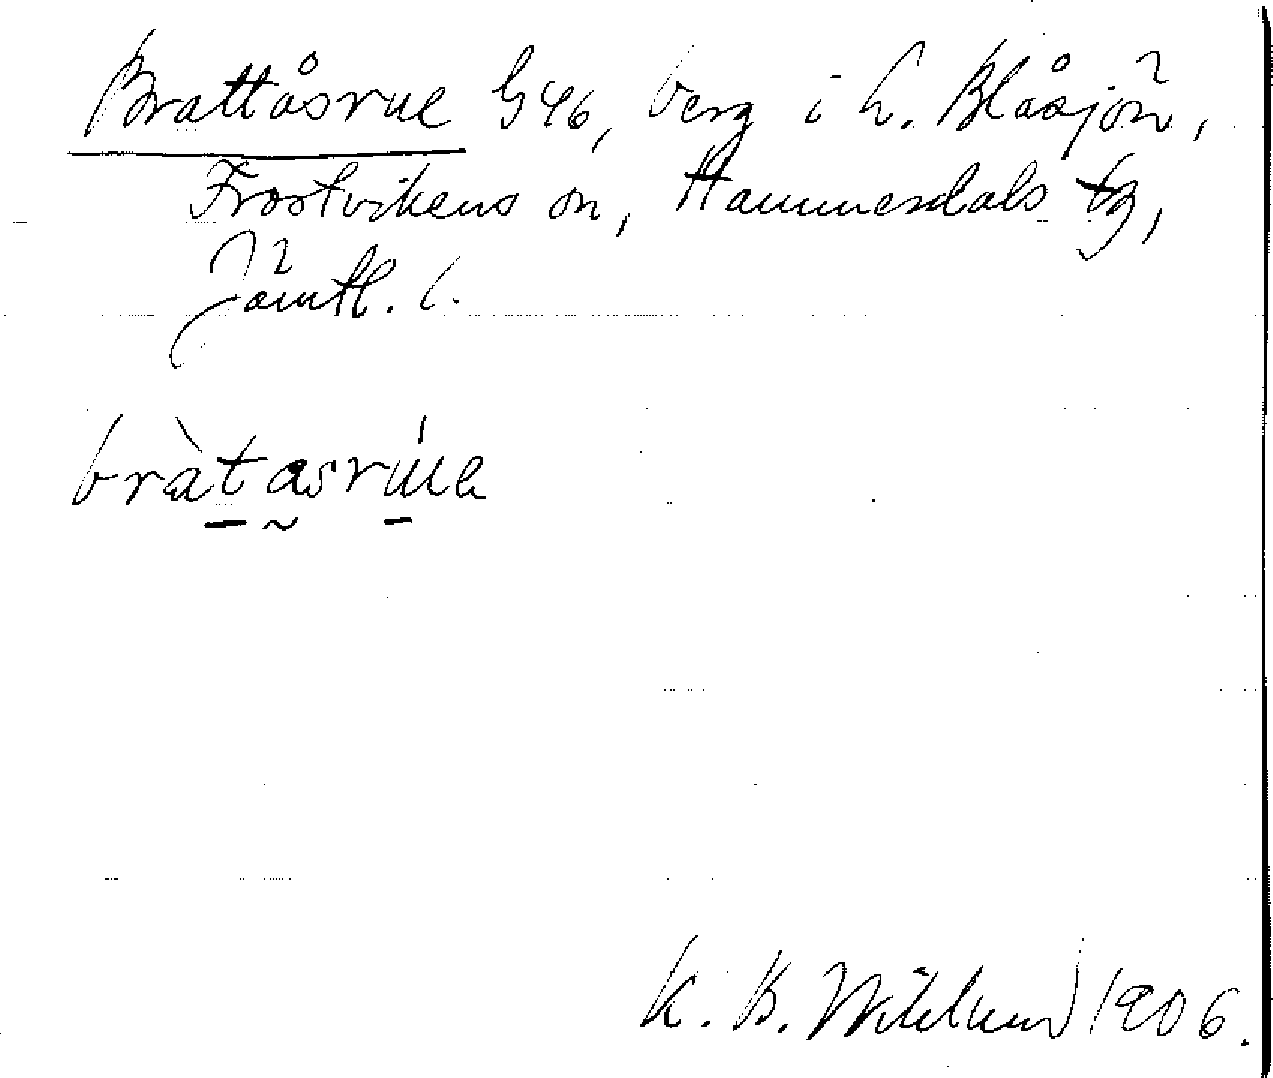 Brattåsrue G46, berg i L. Blåsjön,
Frostvikens sn, Hammerdals tg,
Jämtl. l.
bràtasrúua
K. B. Wiklund 1906.